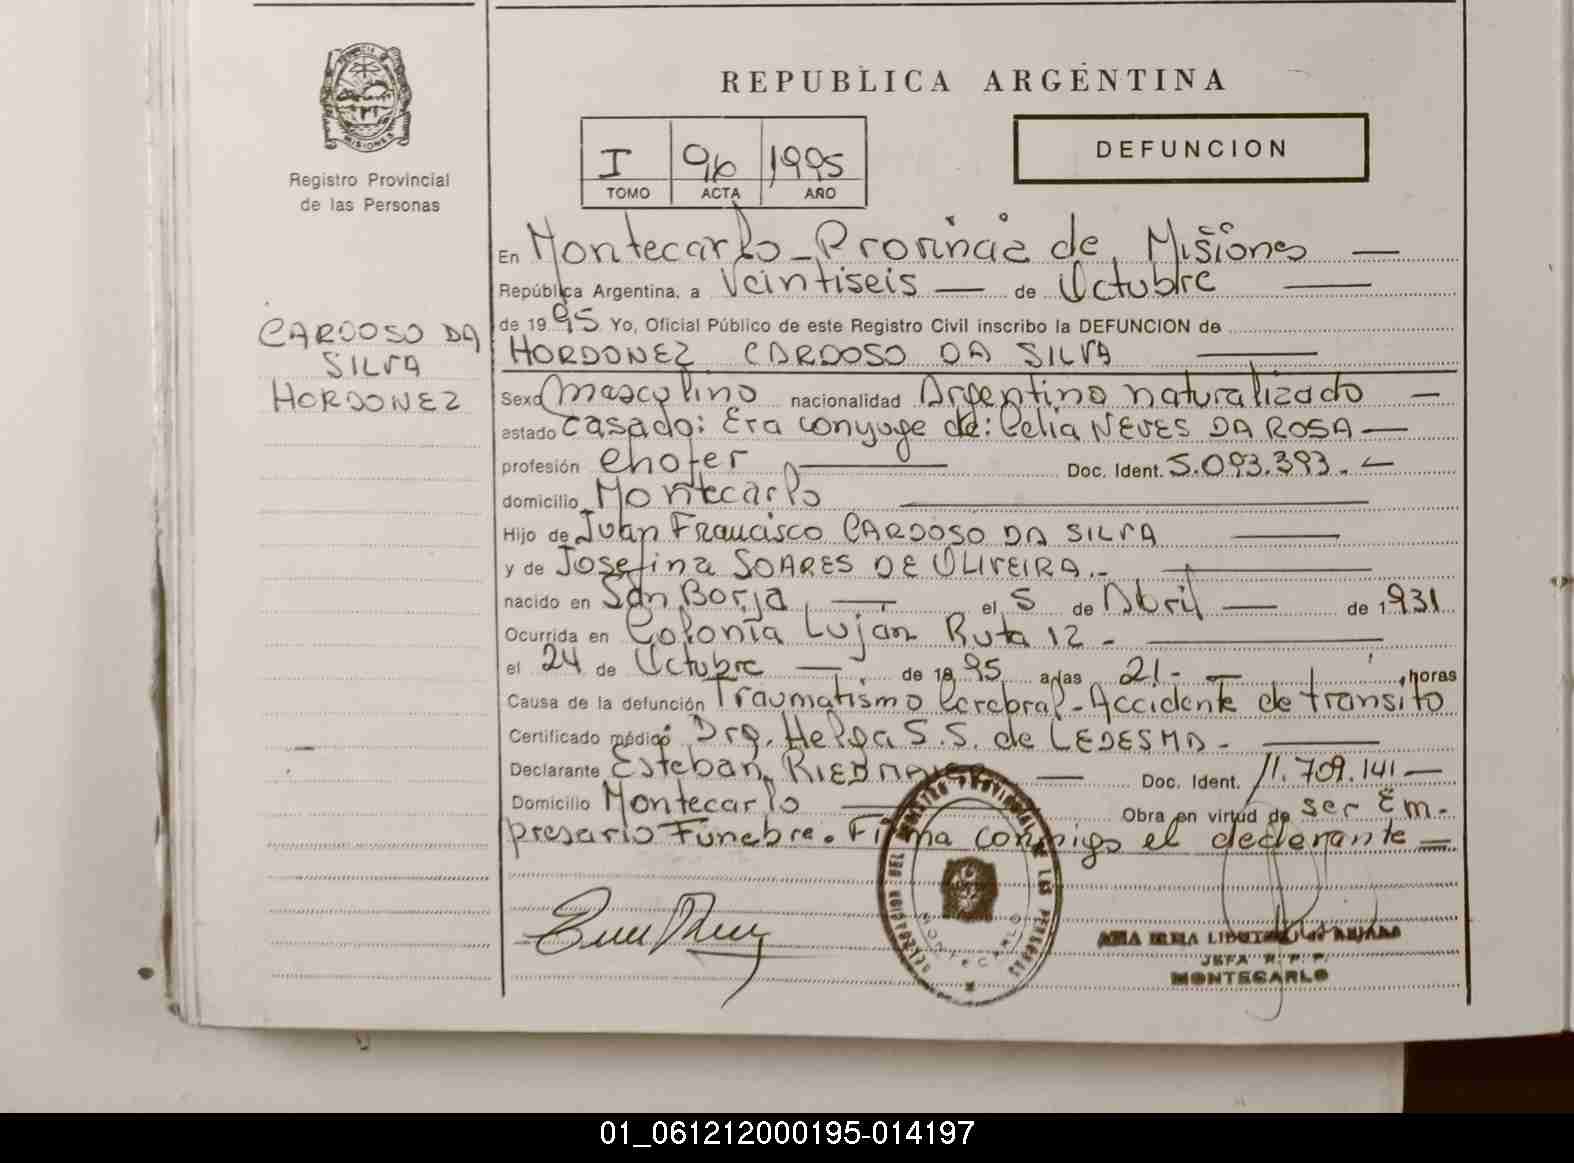 PROVINCIA DE
MISIONES
Registro Provincial
de las Personas
CARDOSO DA
SILVA
HORDONEZ
REPUBLICA ARGENTINA
I 96 1995
TOMO ACTA AÑO
DEFUNCION
En Montecarlo - Provincia de Misiones
República Argentina, a Veintiseis de Octubre
de 1995 Yo, Oficial Público de este Registro Civil inscribo la DEFUNCION de
HORDONEZ CARDOSO DA SILVA
Sexo Masculino nacionalidad Argentino naturalizado
estado casado: Era conyuge de: Celia NEVES DA ROSA
profesión chofer Doc. Ident. 5.093.393.-
domicilio Montecarlo
Hijo de Juan Francisco CARDOSO DA SILVA
y de Josefina SOARES DE OLIVEIRA.-
nacido en San Borja el 5 de Abril de 1931
Ocurrida en Colonia Luján Ruta 12 -
el 24 de Octubre de 1995 a las 21- horas
Causa de la defunción Traumatismo Cerebral - Accidente de transito
Certificado médico Dra. Helga S.S. de LEDESMA -
Declarante Esteban Doc. Ident. 11.709.141
Domicilio Montecarlo Obra en virtud de ser Em-
presario Fúnebre. Firma conmigo el declarante
DELEGACION DEL REGISTRO PROVINCIAL DE LAS PERSONAS
MONTECARLO
JEFA R. P. P.
MONTECARLO
01_061212000195-014197